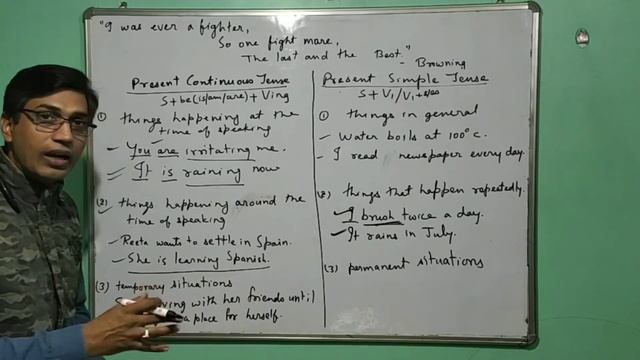 "I was ever a fighter,
So one fight more,
The last and the Best."
- Browning
Present Continuous Tense
S + be (is/am/are) + Ving
(1) things happening at the
time of speaking
- You are irritating me.
- It is raining now
(2) things happening around the
time of speaking
- Reeta wants to settle in Spain.
- She is learning Spanish.
(3) temporary situations
with her friends until
a place for herself.
Present Simple Tense
S + V1/V1 + s/es
(1) things in general
- Water boils at 100°c.
- I read newspaper every day.
(2) things that happen repeatedly.
- I brush twice a day.
- It rains in July.
(3) permanent situations